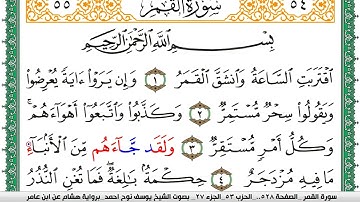 ٥٥ سُورَةُ القَمَر ٥٤
بِسْمِ اللَّهِ الرَّحْمَٰنِ الرَّحِيمِ
اَ۪قْتَرَبَتِ السَّاعَةُ وَانشَقَّ الْقَمَرُ ١ وَإِن يَرَوْا ءَايَةً يُعْرِضُوا
وَيَقُولُوا سِحْرٌ مُّسْتَمِرٌّ ٢ وَكَذَّبُوا وَاتَّبَعُوا أَهْوَآءَهُمْ
وَكُلُّ أَمْرٍ مُّسْتَقِرٌّ ٣ وَلَقَد جَّآءَهُم مِّنَ الْأَنۢبَآءِ
مَا فِيهِ مُزْدَجَرٌ ٤ حِكْمَةٌۢ بَٰلِغَةٌ فَمَا تُغْنِ النُّذُرُ
سورة القمر - الصفحة ٥٢٨... الحزب ٥٣ - الجزء ٢٧... بصوت الشيخ يوسف نوح احمد - برواية هشام عن ابن عامر